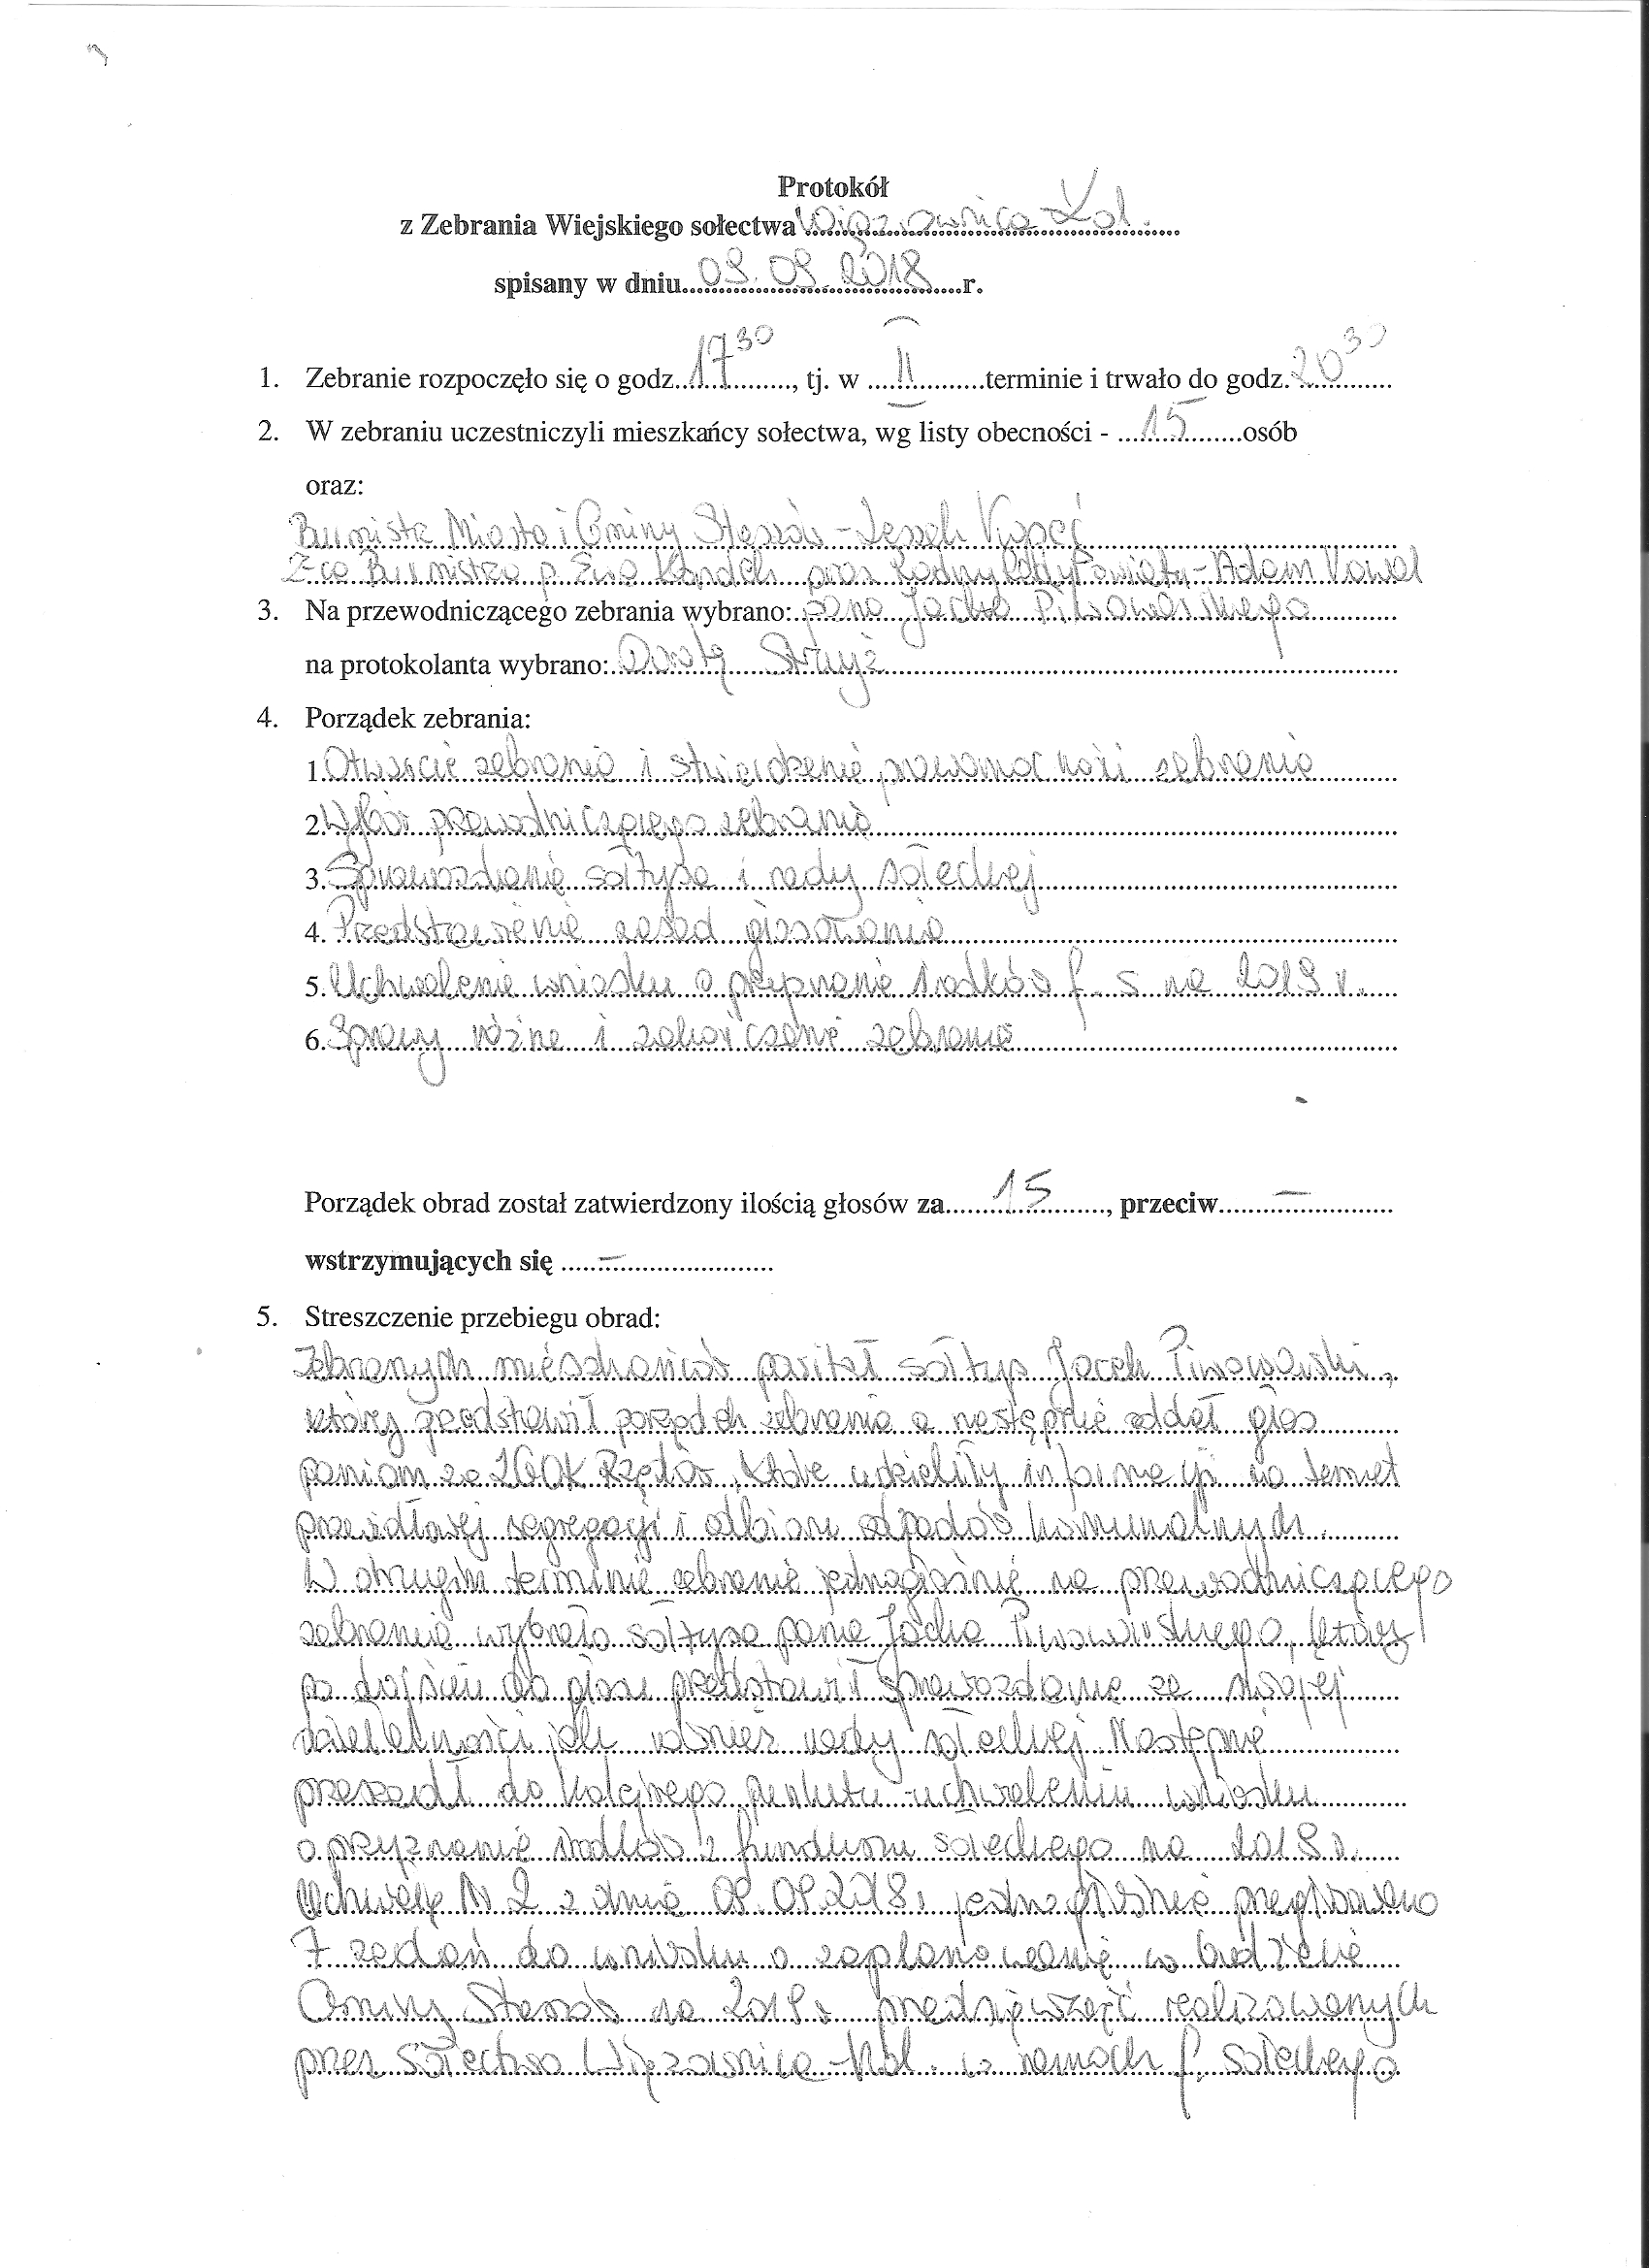 Protokół
z Zebrania Wiejskiego sołectwa Wiązownica Kol.
spisany w dniu 09.09.2018 r.
1. Zebranie rozpoczęło się o godz. 17 30, tj. w II terminie i trwało do godz. 20 30
2. W zebraniu uczestniczyli mieszkańcy sołectwa, wg listy obecności - 15 osób
oraz:
Burmistrz Miasta i Gminy Staszów - Leszek Kopeć
Z-ca Burmistrza p. Ewa Kondek oraz Radny Rady Powiatu - Adam Kowal
3. Na przewodniczącego zebrania wybrano: pana Jacka Piwowarskiego
na protokolanta wybrano: Dorotę Stżyż
4. Porządek zebrania:
1. Otwarcie zebrania i stwierdzenie prawomocności zebrania
2. Wybór przewodniczącego zebrania
3. Sprawozdanie sołtysa i rady sołeckiej
4. Przedstawienie zasad głosowania
5. Uchwalenie wniosku o przyznanie środków f. s na 2019 r.
6. Sprawy różne i zakończenie zebrania
Porządek obrad został zatwierdzony ilością głosów za 15, przeciw -
wstrzymujących się -
5. Streszczenie przebiegu obrad:
Zebranych mieszkańców powitał sołtys Jacek Piwowarski,
który przedstawił porządek zebrania a następnie oddał głos
paniom z ZGOK Rzędów, które udzieliły informacji na temat
prawidłowej segregacji i odbioru odpadów komunalnych.
W drugim terminie zebranie jednogłośnie na przewodniczącego
zebrania wybrało sołtysa pana Jacka Piwowarskiego, który
po dojściu do głosu przedstawił sprawozdanie ze swojej
działalności jak również rady sołeckiej. Następnie
przeszedł do kolejnego punktu - uchwaleniu wniosku
o przyznanie środków z funduszu sołeckiego na 2019 r.
Uchwałą Nr 2 z dnia 09.09.2018 r jednogłośnie przegłosowano
7 zadań do wniosku o zaplanowanie w budżecie
Gminy Staszów na 2019 r przedsięwzięć realizowanych
przez Sołectwo Wiązownica - Kol. w ramach f. sołeckiego